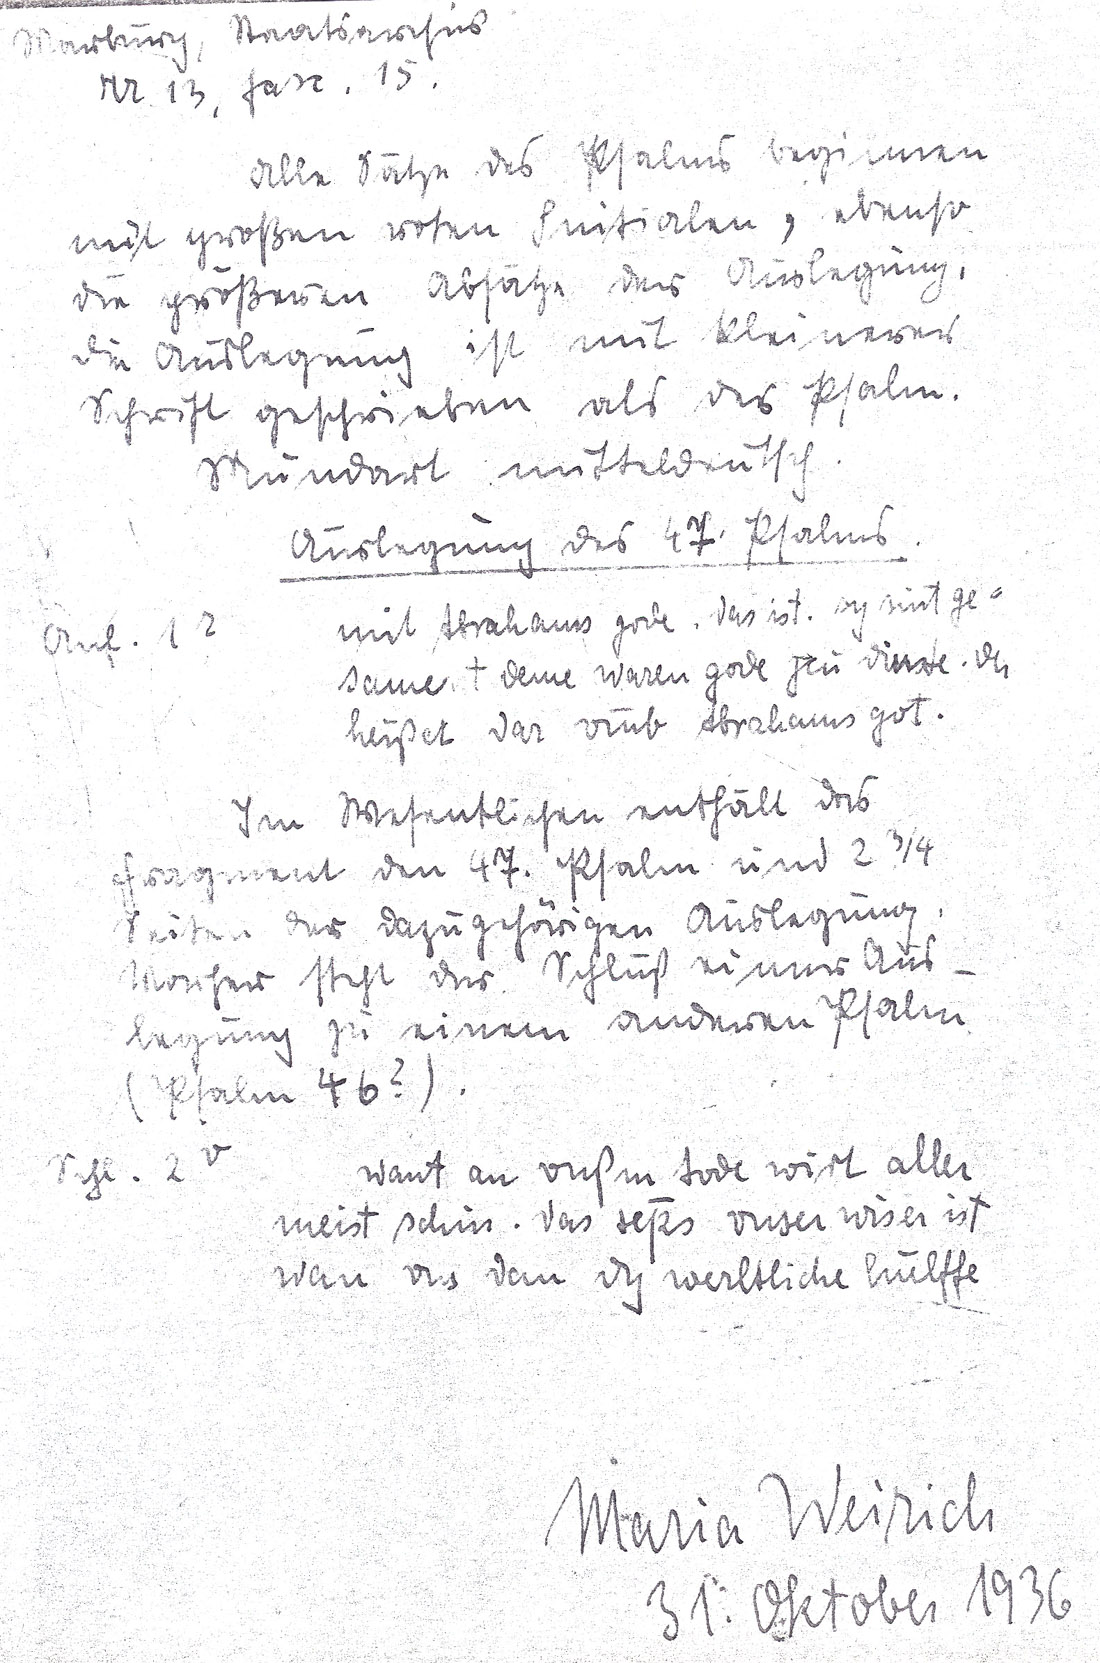 Marburg, Staatsarchiv
Nr 13, fasc. 15.
Alle Sätze des Psalms beginnen
mit großen roten Initialen, ebenso
die größeren Absätze der Auslegung.
Die Auslegung ist mit kleinerer
Schrift geschrieben als der Psalm.
Mundart mitteldeutsch.
Auslegung des 47. Psalms.
Anf. 1r mit Abrahams gode. das ist. sy sint ge-
same.t deme waren gode zu dinste. der
heißet dar vmb Abrahams got.
Im Wesentlichen enthält das
Fragment den 47. Psalm und 2 3/4
Seiten der dazugehörigen Auslegung.
Vorher steht der Schluß einer Aus-
legung zu einem anderen Psalm
(Psalm 46?).
Schl. 2v want an vnßm tode wirt aller
meist schin. das vnser wiser ist
wan vns dan dy werltliche hulffe
Maria Weirich
31. Oktober 1936